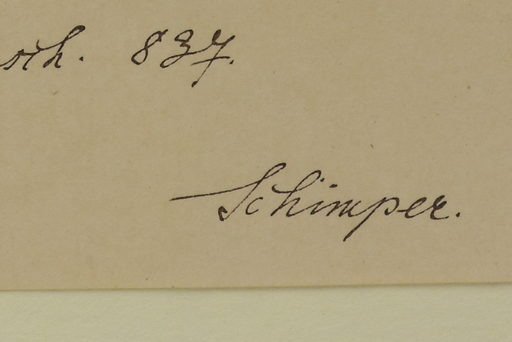 sch. 837.
Schimper.